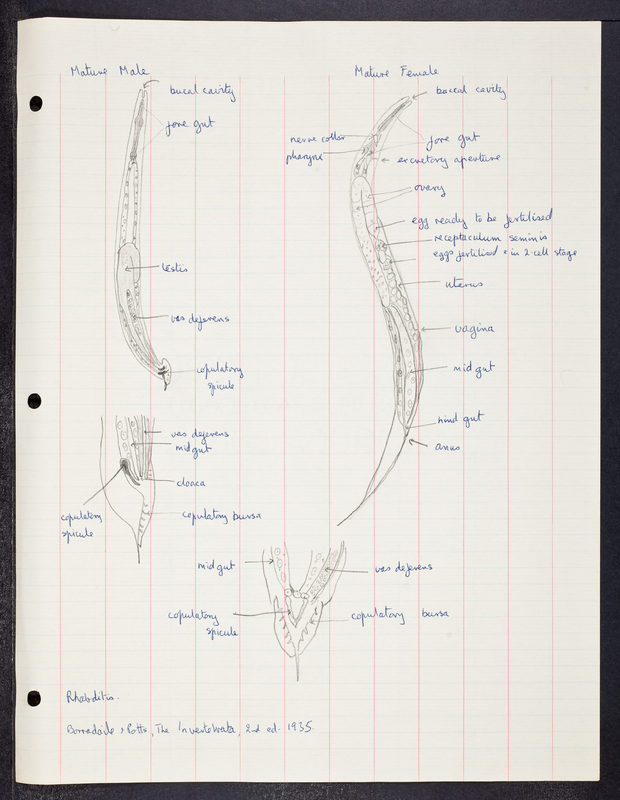 Mature Male
bucal cavity
fore gut
testis
vas deferens
copulatory
spicule
vas deferens
midgut
cloaca
copulatory
spicule
copulatory bursa
Mature Female
buccal cavity
nerve collar
fore gut
pharynx
excretory aperture
ovary
egg ready to be fertilised
receptaculum seminis
eggs fertilised + in 2-cell stage
uterus
vagina
mid gut
hind gut
anus
midgut
vas deferens
copulatory
spicule
copulatory bursa
Rhabditis.
Borradaile & Potts, The Invertebrata, 2nd ed. 1935.